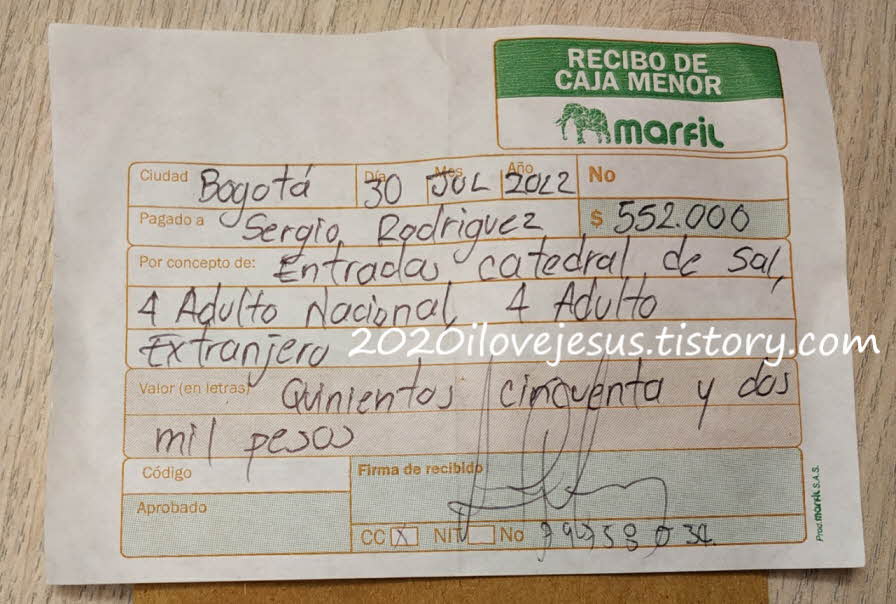 RECIBO DE
CAJA MENOR
marfil
Ciudad Bogotá Día 30 Mes JUL Año 2022 No
Pagado a Sergio Rodriguez $ 552.000
Por concepto de: Entradas catedral de sal,
4 Adulto Nacional, 4 Adulto
Extranjero
2020ilovejesus.tistory.com
Valor (en letras) Quinientos cincuenta y dos
mil pesos
Código
Firma de recibido
Aprobado
CC X NIT No
Prod. marfil S.A.S.